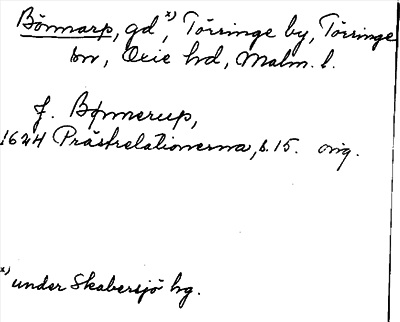 Bönnarp, gd x), Törringe by, Törringe
sn, Oxie hd, Malm. l.
f. Bønnerup,
1624 Prästrelationerna, s. 15. orig.
x) under Skabersjö hg.